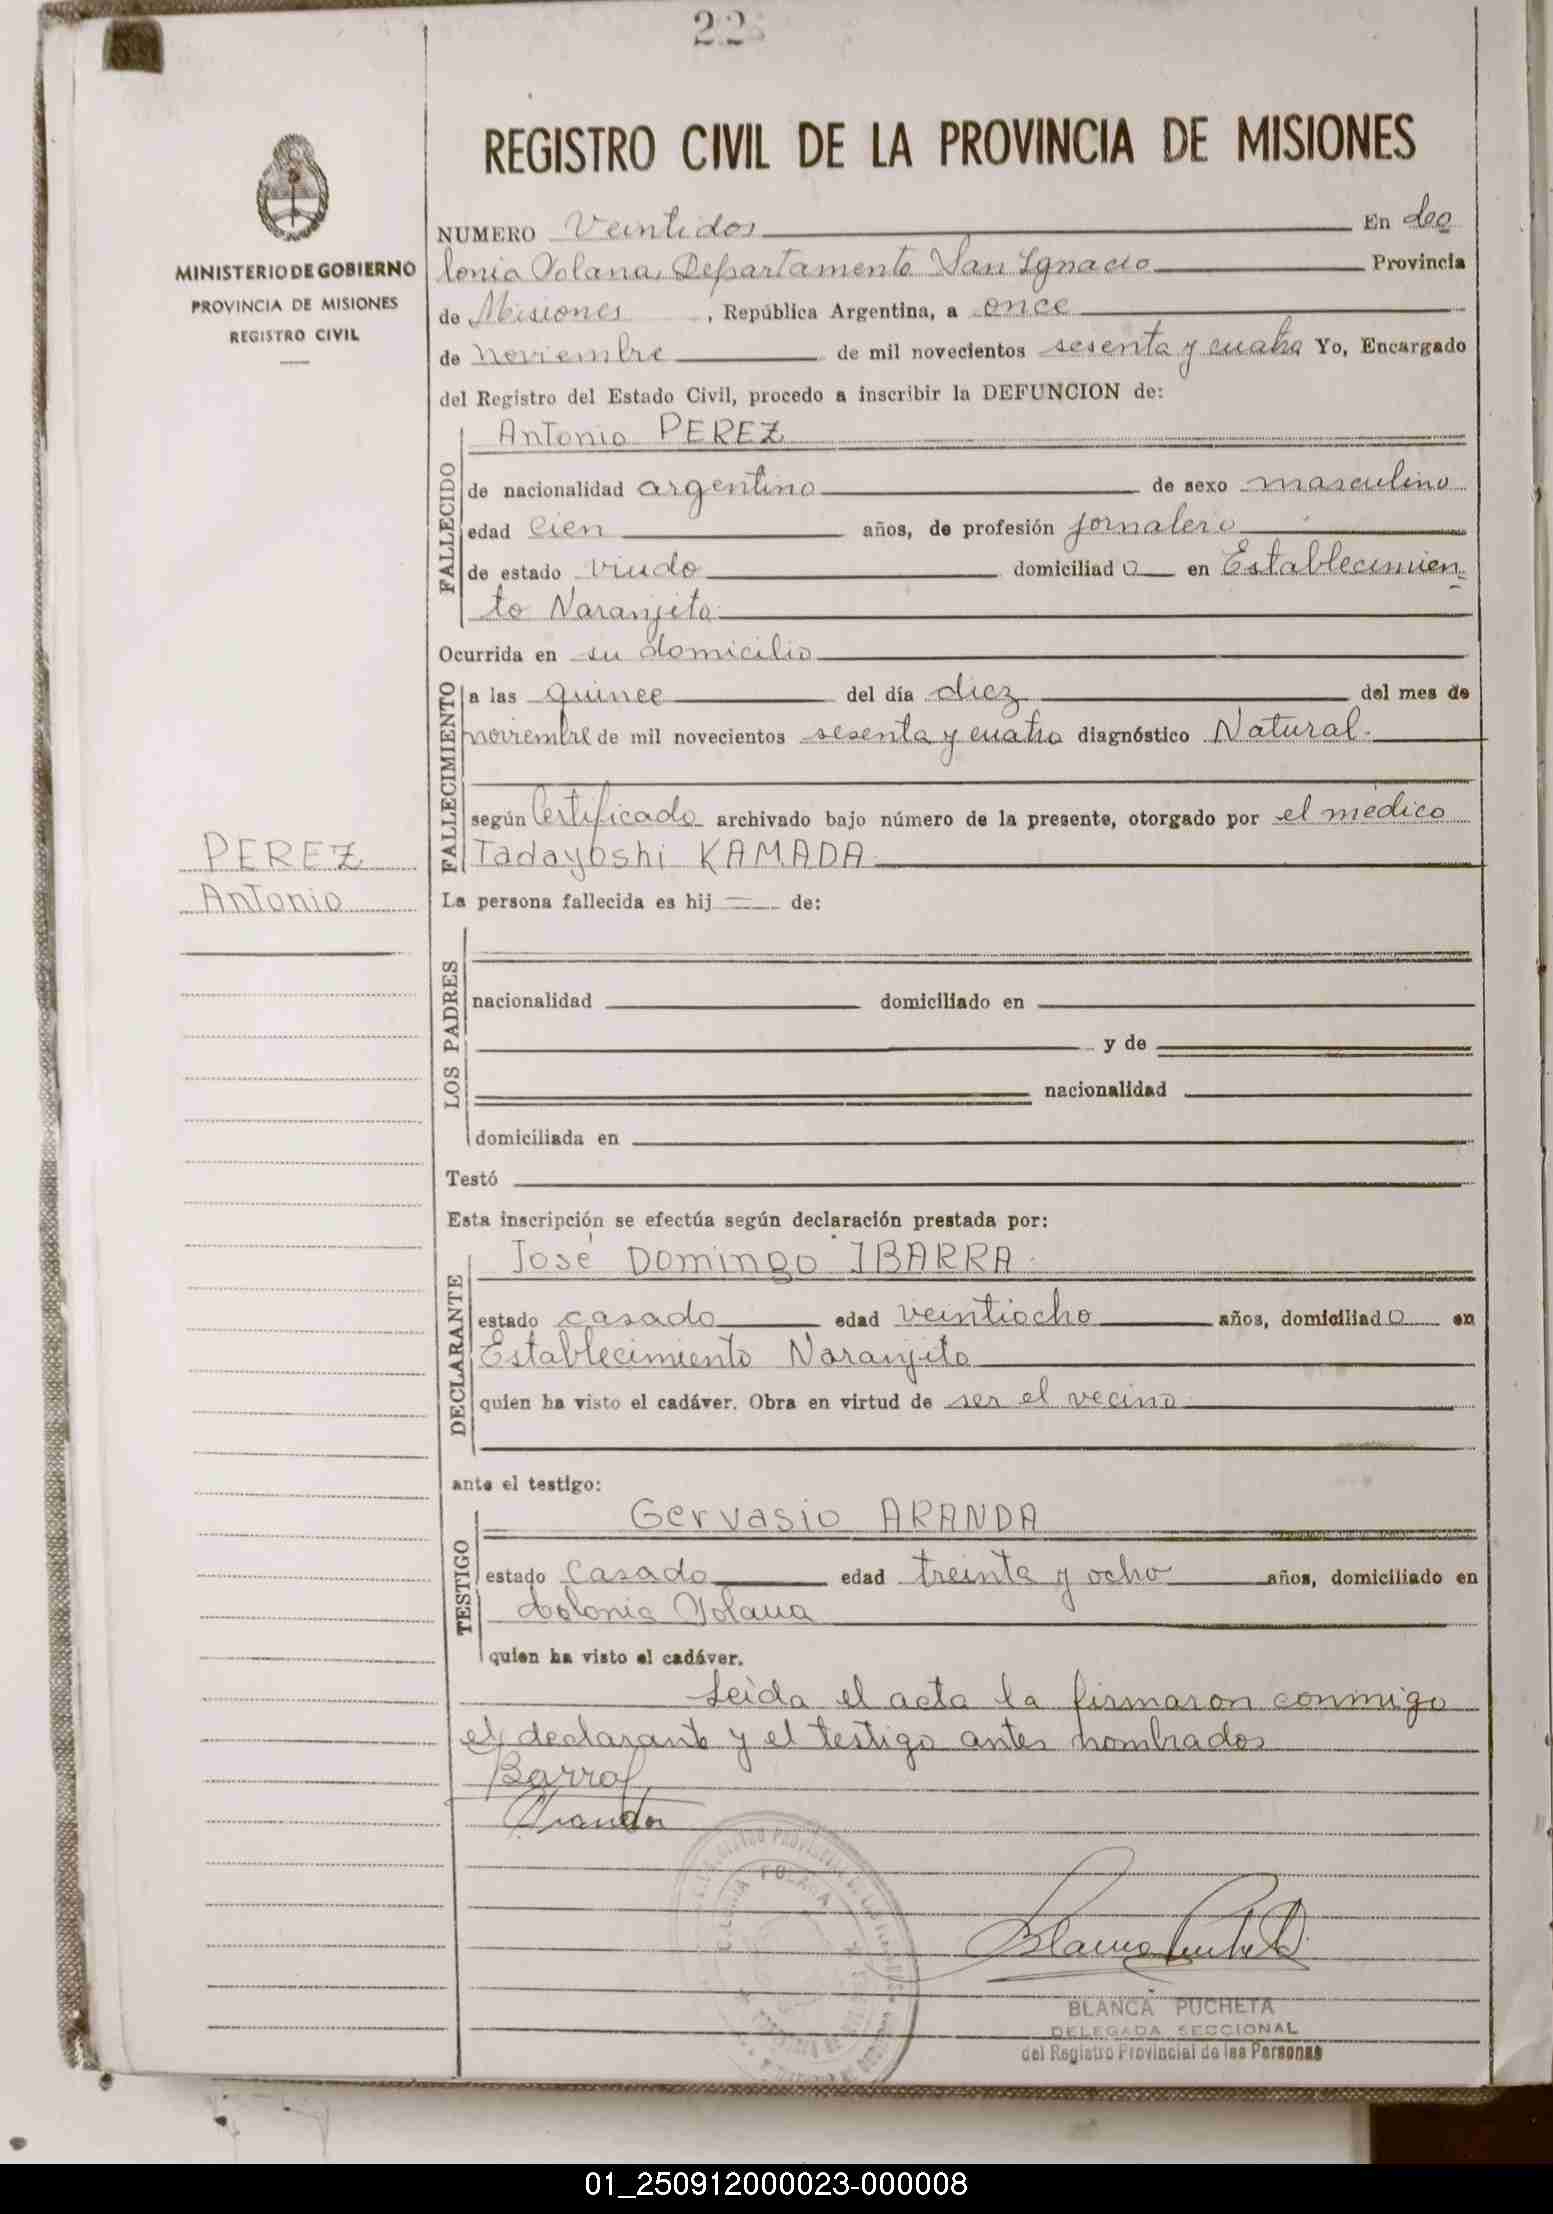 22
REGISTRO CIVIL DE LA PROVINCIA DE MISIONES
MINISTERIO DE GOBIERNO
PROVINCIA DE MISIONES
REGISTRO CIVIL
NUMERO Veintidos En Co
lonia Polana, Departamento San Ignacio Provincia
de Misiones, República Argentina, a once
de noviembre de mil novecientos sesenta y cuatro Yo, Encargado
del Registro del Estado Civil, procedo a inscribir la DEFUNCION de:
FALLECIDO
Antonio PEREZ
de nacionalidad argentino de sexo masculino
edad cien años, de profesión jornalero
de estado viudo domiciliado en Establecimien
to Naranjito
Ocurrida en su domicilio
FALLECIMIENTO
a las quince del día diez del mes de
noviembre de mil novecientos sesenta y cuatro diagnóstico Natural.
según Certificado archivado bajo número de la presente, otorgado por el médico
Tadayoshi KAMADA
PEREZ
Antonio
La persona fallecida es hij = de:
LOS PADRES
nacionalidad domiciliado en
y de
nacionalidad
domiciliada en
Testó
Esta inscripción se efectúa según declaración prestada por:
DECLARANTE
José Domingo IBARRA
estado casado edad veintiocho años, domiciliado en
Establecimiento Naranjito
quien ha visto el cadáver. Obra en virtud de ser el vecino
ante el testigo:
TESTIGO
Gervasio ARANDA
estado casado edad treinta y ocho años, domiciliado en
Colonia Polana
quien ha visto el cadáver.
Leida el acta la firmaron conmigo
el declarante y el testigo antes nombrados
COLONIA POLANA
BLANCA PUCHETA
DELEGADA SECCIONAL
del Registro Provincial de las Personas
01_250912000023-000008